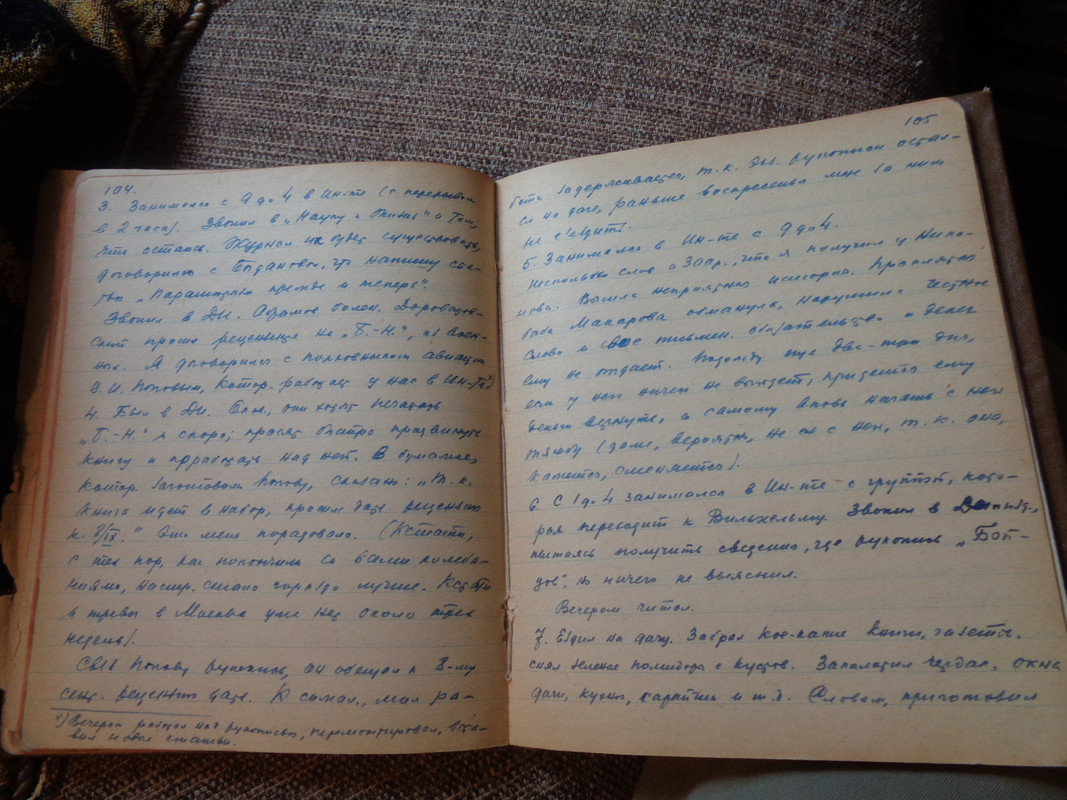 104.
3. Занимался с 9 до 4 в Ин-те (с перерывом
в 2 часа). Звонил в „Науку и Жизнь" о том,
что остаюсь. Журнал будет существовать,
договорился с Богдановой, что напишу ста-
тью „Парашютизм прежде и теперь".
Звонил в ДИ. Абрамов болен.
просит рецензию на „Б.-Н.", из воен-
ных. Я договорился с полковником авиации
В. И. Поповым, котор. работает у нас в Ин-те*)
4. Был в ДИ. Они хотят печатать
„Б.-Н." и скоро; просят быстро продвинуть
книгу и поработать над ней. В бумажке,
котор. заготовили Попову, сказано: „Т. к.
книга идет в набор, просим дать рецензию
к 8/IX." Это меня порадовало. (Кстати,
с тех пор, как покончили со всеми колеба-
ниями, настр. стало гораздо лучше. Кстати
и тревог в Москве уже нет около трех
недель).
Свез Попову рукопись, он обещал к 8-му
сент. рецензию дать. К сожал., моя ра-
*) Вечером работал над рукописью, перемонтировал, вста-
вил новые статьи.
105
бота задерживается, т. к. экз. рукописи остал-
ся на даче, раньше воскресенья мне за ним
не съездить.
5. Занимался в Ин-те с 9 до 4.
Несколько слов о 300 р., что я получил у
нова. Вышла неприятная история.
баба Макарова обманула, нарушила честное
слово и все письмен. обязательства и денег
ему не отдает. Подожду еще два-три дня,
если у него ничего не выйдет, придется ему
деньги вернуть, а самому вновь начать с ней
тяжбу (даже, вероятно, не с ней, т. к. она,
кажется, сменяется).
6. С 1 до 4 занимался в Ин-те с группой, кото-
рая переходит к Вильхельму. Звонил в
пытаясь получить сведения, где рукопись „Бой-
цов", но ничего не выяснил.
Вечером читал.
7. Ездил на дачу. Забрал кое-какие книги, газеты.
снял зеленые помидоры с кустов. Заколотил чердак, окна
дачи, кухни, сарайчик и т.д. Словом, приготовил